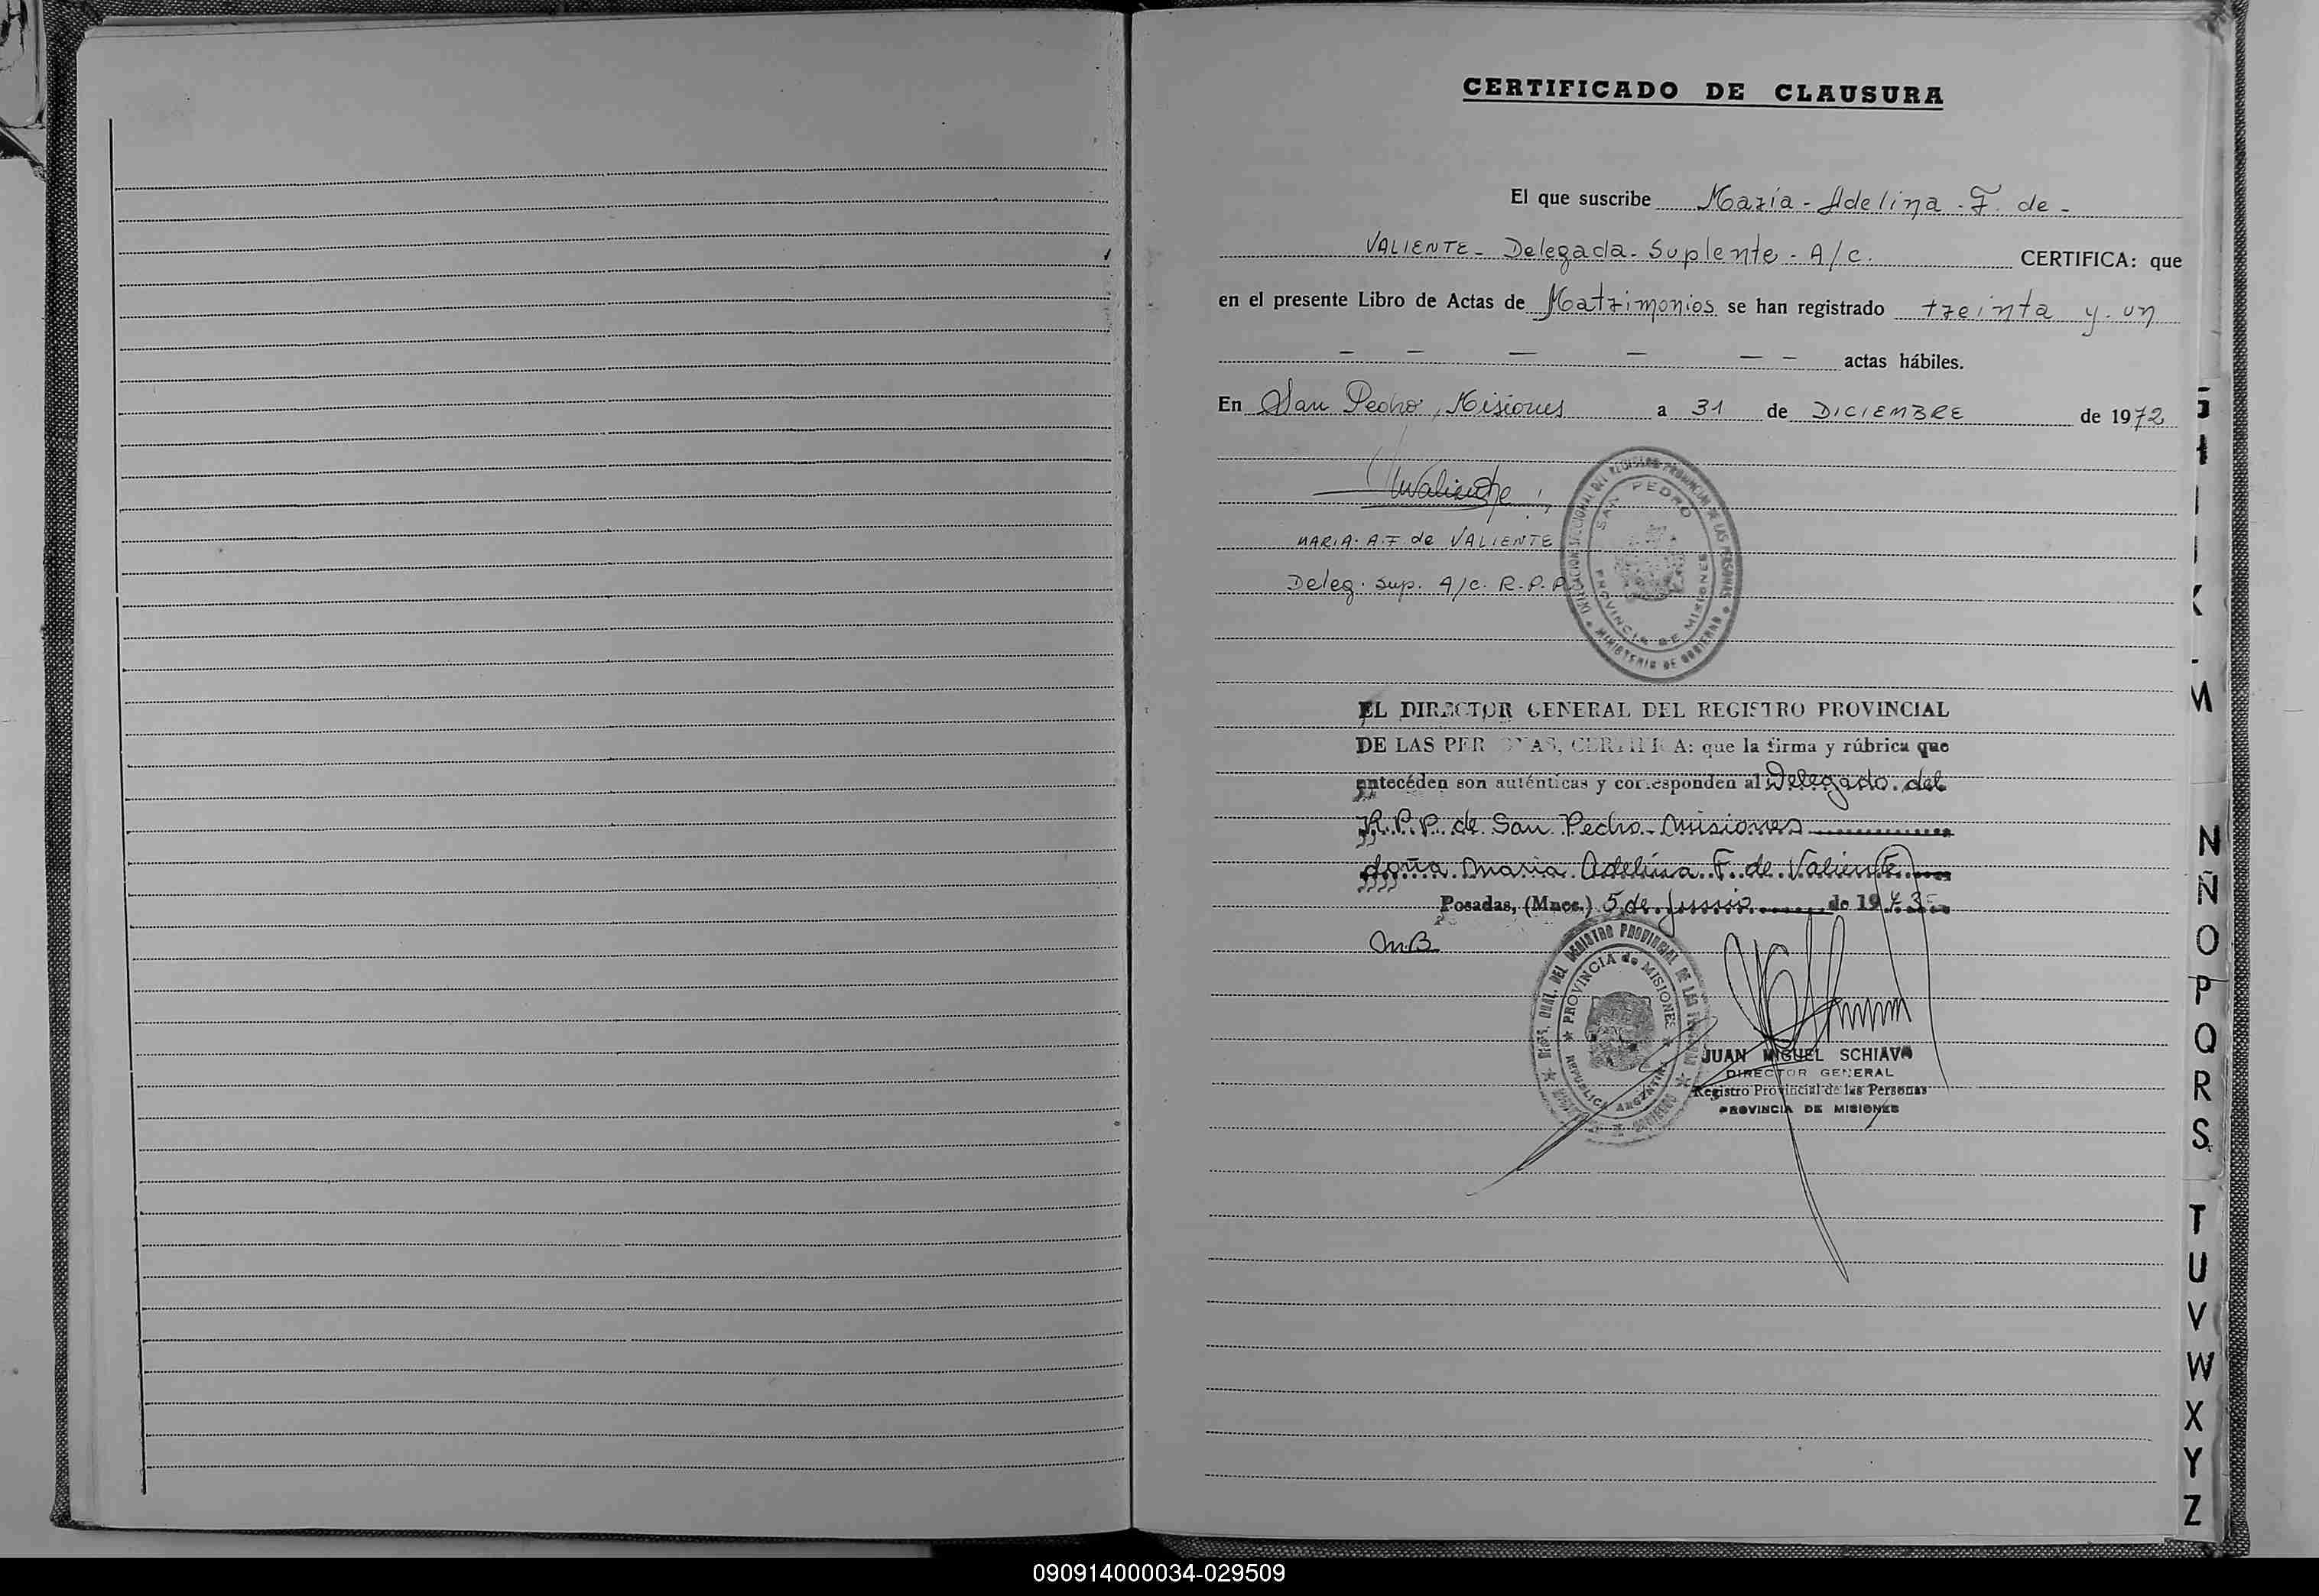 CERTIFICADO DE CLAUSURA
El que suscribe María - Adelina - F. de -
VALIENTE - Delegada - Suplente - A/c. CERTIFICA: que
en el presente Libro de Actas de Matrimonios se han registrado treinta y un
— — — — — — actas hábiles.
En San Pedro, Misiones a 31 de DICIEMBRE de 1972
MARIA. A. F. de VALIENTE
Deleg. Sup. A/c. R.P.P.
DELEGACION SECCIONAL DEL REGISTRO PROVINCIAL DE LAS PERSONAS
MINISTERIO DE GOBIERNO
SAN PEDRO
PROVINCIA DE MISIONES
EL DIRECTOR GENERAL DEL REGISTRO PROVINCIAL
DE LAS PERSONAS, CERTIFICA: que la firma y rúbrica que
antecéden son auténticas y corresponden al Delegado del
R.P.P. de San Pedro - Misiones
doña Maria Adelina F. de Valiente
Posadas, (Mnes.) 5 de Junio de 1973
M.B.
DIREC. GRAL. DEL REGISTRO PROVINCIAL DE LAS
PROVINCIA de MISIONES
REPUBLICA ARGENTINA
JUAN MIGUEL SCHIAVO
DIRECTOR GENERAL
Registro Provincial de las Personas
PROVINCIA DE MISIONES
M
N
Ñ
O
P
Q
R
S
T
U
V
W
X
Y
Z
090914000034-029509